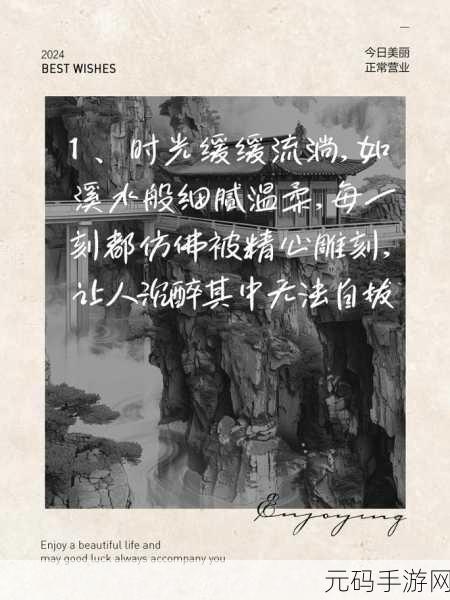 2024
BEST WISHES
今日美丽
正常营业
1、时光缓缓流淌，如
溪水般细腻温柔，每一
刻都仿佛被精心雕刻，
让人沉醉其中无法自拔
Enjoying
Enjoy a beautiful life and
may good luck always accompany you
元码手游网